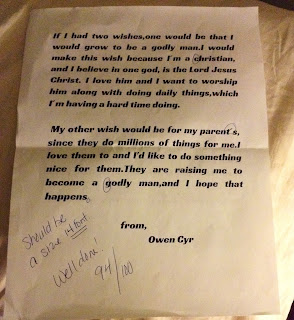 If I had two wishes,one would be that I
would grow to be a godly man.I would
make this wish because I'm a christian,
and I believe in one god, is the Lord Jesus
Christ. I love him and I want to worship
him along with doing daily things,which
I'm having a hard time doing.
My other wish would be for my parent's,
since they do millions of things for me.I
love them to and I'd like to do something
nice for them.They are raising me to
become a godly man,and I hope that
happens
from,
Owen Gyr
Should be
a size 14 font
Well done!
94/100